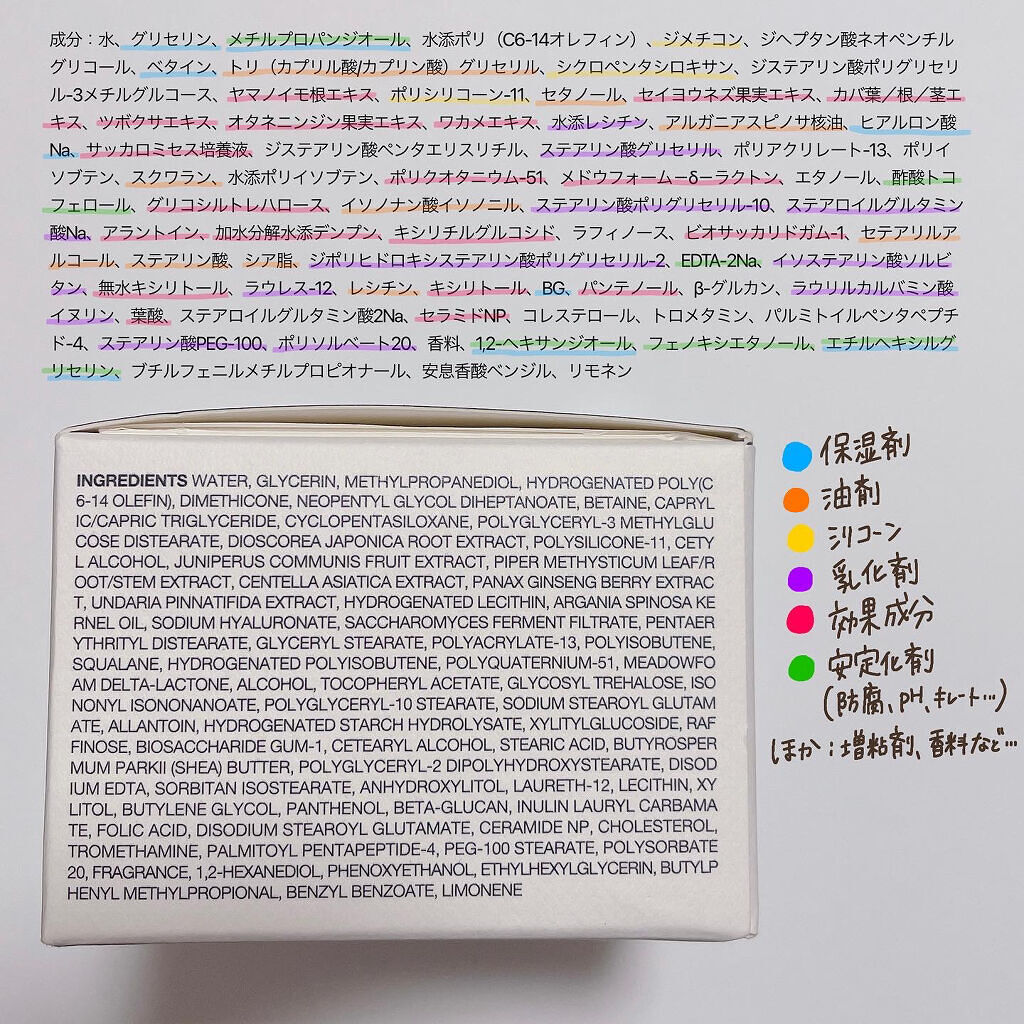 成分：水、グリセリン、メチルプロパンジオール、水添ポリ（C6-14オレフィン）、ジメチコン、ジヘプタン酸ネオペンチル
グリコール、ベタイン、トリ（カプリル酸/カプリン酸）グリセリル、シクロペンタシロキサン、ジステアリン酸ポリグリセリ
ル-3メチルグルコース、ヤマノイモ根エキス、ポリシリコーン-11、セタノール、セイヨウネズ果実エキス、カバ葉／根／茎エ
キス、ツボクサエキス、オタネニンジン果実エキス、ワカメエキス、水添レシチン、アルガニアスピノサ核油、ヒアルロン酸
Na、サッカロミセス培養液、ジステアリン酸ペンタエリスリチル、ステアリン酸グリセリル、ポリアクリレート-13、ポリイ
ソブテン、スクワラン、水添ポリイソブテン、ポリクオタニウム-51、メドウフォーム－δ－ラクトン、エタノール、酢酸トコ
フェロール、グリコシルトレハロース、イソノナン酸イソノニル、ステアリン酸ポリグリセリル-10、ステアロイルグルタミン
酸Na、アラントイン、加水分解水添デンプン、キシリチルグルコシド、ラフィノース、ビオサッカリドガム-1、セテアリルア
ルコール、ステアリン酸、シア脂、ジポリヒドロキシステアリン酸ポリグリセリル-2、EDTA-2Na、イソステアリン酸ソルビ
タン、無水キシリトール、ラウレス-12、レシチン、キシリトール、BG、パンテノール、β-グルカン、ラウリルカルバミン酸
イヌリン、葉酸、ステアロイルグルタミン酸2Na、セラミドNP、コレステロール、トロメタミン、パルミトイルペンタペプチ
ド-4、ステアリン酸PEG-100、ポリソルベート20、香料、1,2-ヘキサンジオール、フェノキシエタノール、エチルヘキシルグ
リセリン、ブチルフェニルメチルプロピオナール、安息香酸ベンジル、リモネン
INGREDIENTS WATER, GLYCERIN, METHYLPROPANEDIOL, HYDROGENATED POLY(C
6-14 OLEFIN), DIMETHICONE, NEOPENTYL GLYCOL DIHEPTANOATE, BETAINE, CAPRYL
IC/CAPRIC TRIGLYCERIDE, CYCLOPENTASILOXANE, POLYGLYCERYL-3 METHYLGLU
COSE DISTEARATE, DIOSCOREA JAPONICA ROOT EXTRACT, POLYSILICONE-11, CETY
L ALCOHOL, JUNIPERUS COMMUNIS FRUIT EXTRACT, PIPER METHYSTICUM LEAF/R
OOT/STEM EXTRACT, CENTELLA ASIATICA EXTRACT, PANAX GINSENG BERRY EXTRAC
T, UNDARIA PINNATIFIDA EXTRACT, HYDROGENATED LECITHIN, ARGANIA SPINOSA KE
RNEL OIL, SODIUM HYALURONATE, SACCHAROMYCES FERMENT FILTRATE, PENTAER
YTHRITYL DISTEARATE, GLYCERYL STEARATE, POLYACRYLATE-13, POLYISOBUTENE,
SQUALANE, HYDROGENATED POLYISOBUTENE, POLYQUATERNIUM-51, MEADOWFO
AM DELTA-LACTONE, ALCOHOL, TOCOPHERYL ACETATE, GLYCOSYL TREHALOSE, ISO
NONYL ISONONANOATE, POLYGLYCERYL-10 STEARATE, SODIUM STEAROYL GLUTAM
ATE, ALLANTOIN, HYDROGENATED STARCH HYDROLYSATE, XYLITYLGLUCOSIDE, RAF
FINOSE, BIOSACCHARIDE GUM-1, CETEARYL ALCOHOL, STEARIC ACID, BUTYROSPER
MUM PARKII (SHEA) BUTTER, POLYGLYCERYL-2 DIPOLYHYDROXYSTEARATE, DISOD
IUM EDTA, SORBITAN ISOSTEARATE, ANHYDROXYLITOL, LAURETH-12, LECITHIN, XY
LITOL, BUTYLENE GLYCOL, PANTHENOL, BETA-GLUCAN, INULIN LAURYL CARBAMA
TE, FOLIC ACID, DISODIUM STEAROYL GLUTAMATE, CERAMIDE NP, CHOLESTEROL,
TROMETHAMINE, PALMITOYL PENTAPEPTIDE-4, PEG-100 STEARATE, POLYSORBATE
20, FRAGRANCE, 1,2-HEXANEDIOL, PHENOXYETHANOL, ETHYLHEXYLGLYCERIN, BUTYLP
HENYL METHYLPROPIONAL, BENZYL BENZOATE, LIMONENE
保湿剤
油剤
シリコーン
乳化剤
効果成分
安定化剤
(防腐、pH、キレート…)
ほか：増粘剤、香料など…